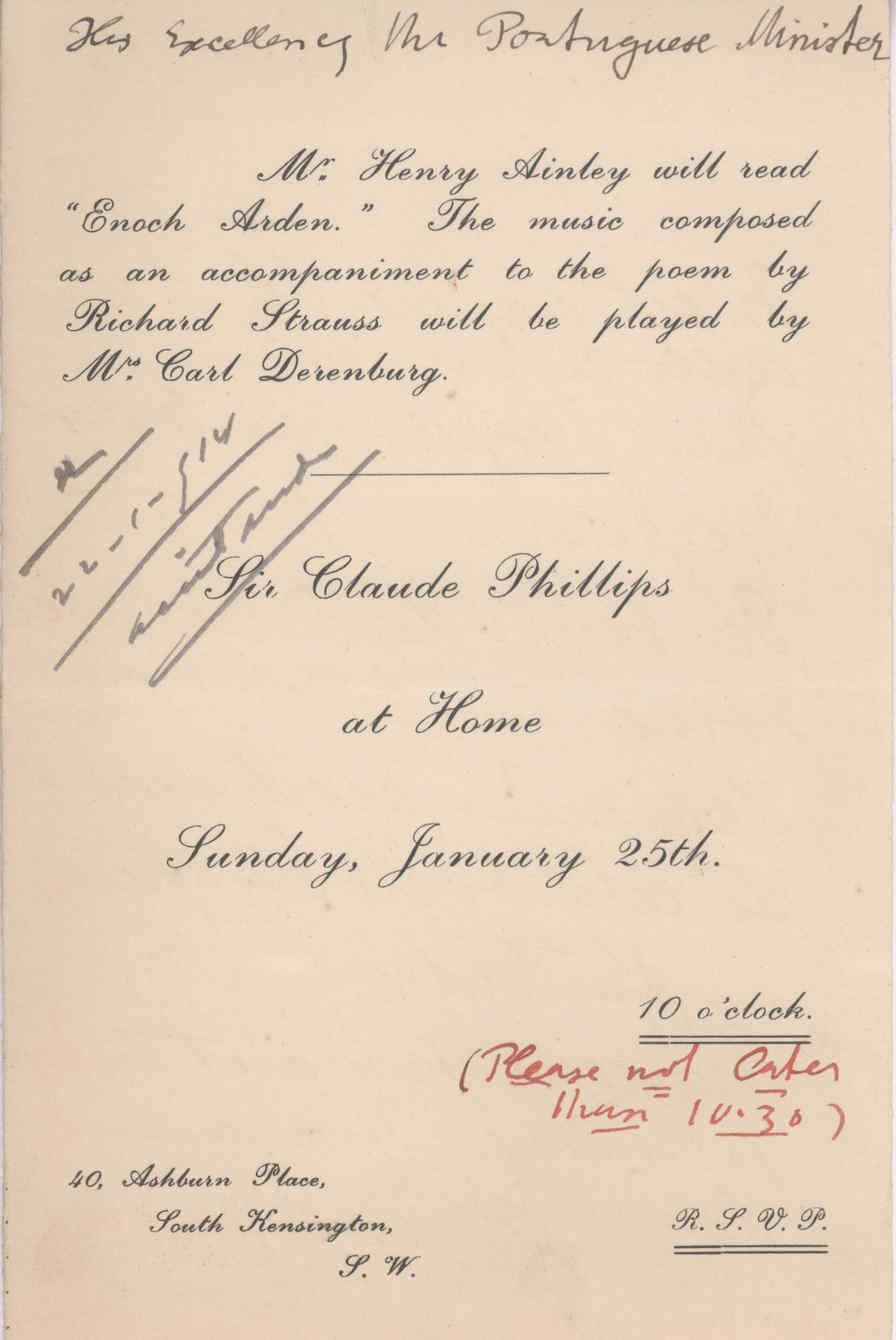 His Excellency the Portuguese Minister
Mr. Henry Ainley will read
"Enoch Arden." The music composed
as an accompaniment to the poem by
Richard Strauss will be played by
Mrs. Carl Derenburg.
22-1-914
Sir Claude Phillips
at Home
Sunday, January 25th.
10 o'clock.
(Please not Later
than 10.30)
40, Ashburn Place,
South Kensington,
S. W.
R. S. V. P.